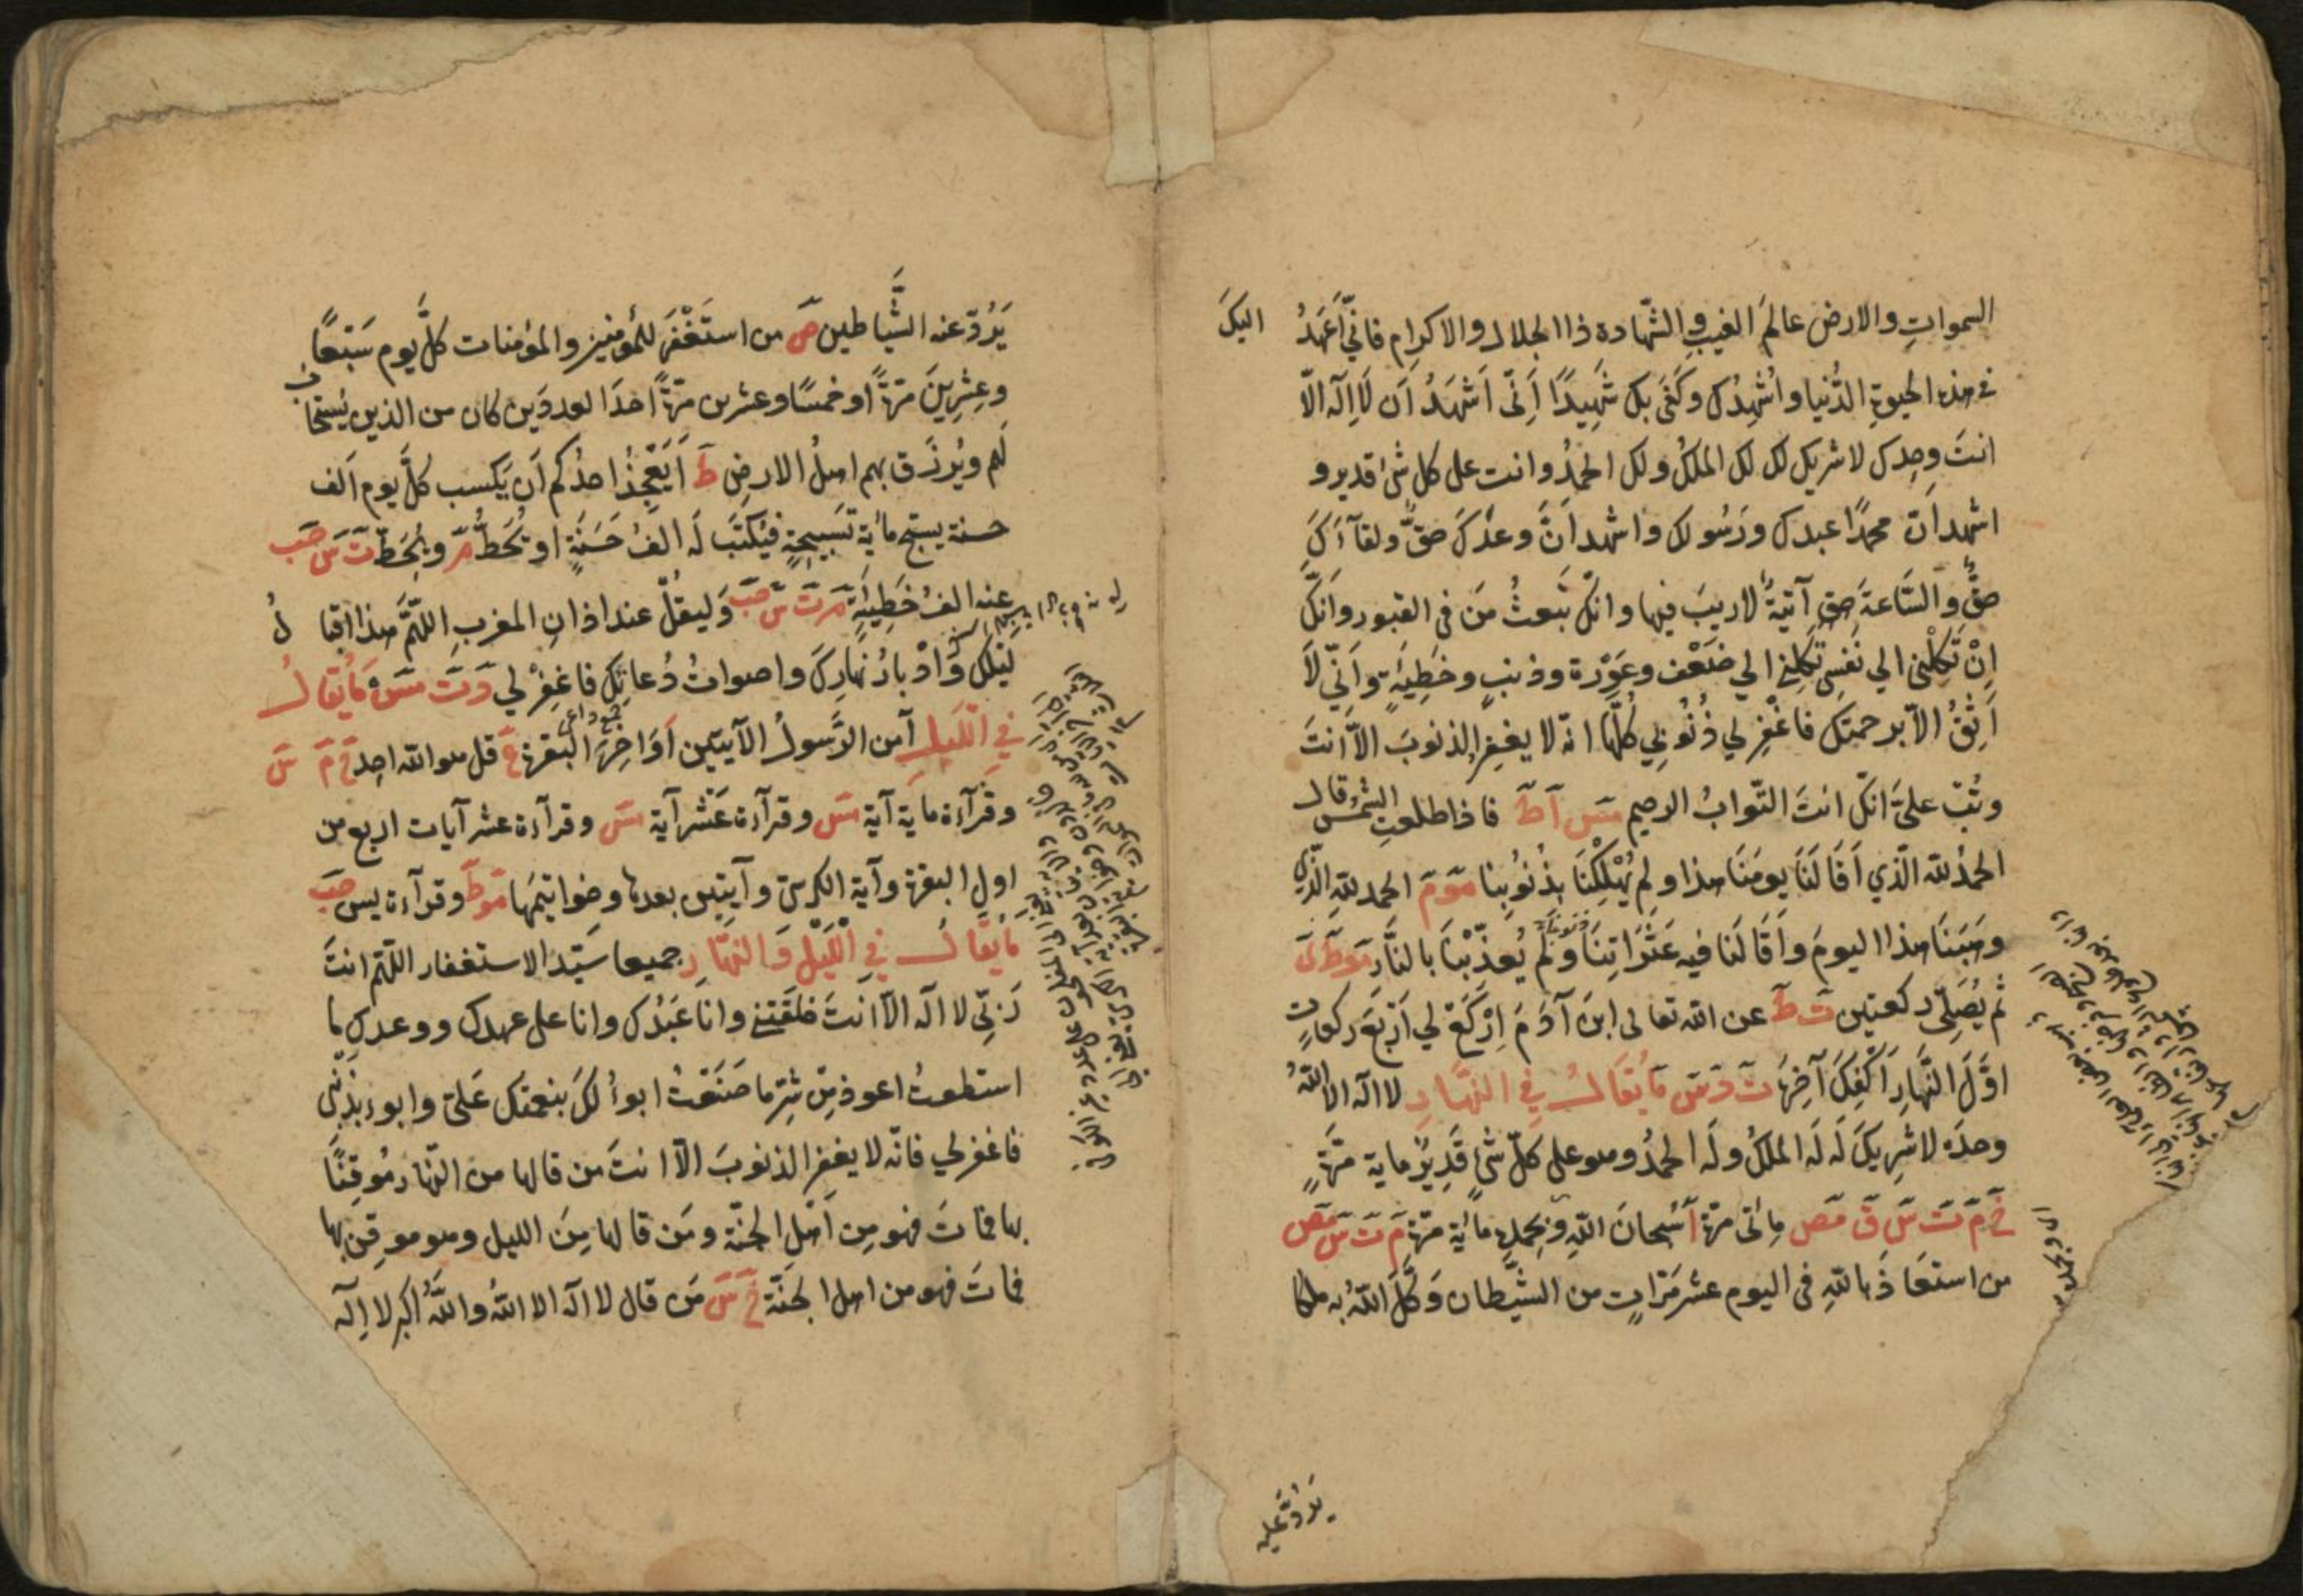 السموات والارض عالم الغيب والشهادة ذا الجلال والاكرام فاني اعهد اليك
في هذه الحيوة الدنيا واشهدك وكفى بك شهيدا اني اشهد ان لا اله الا
انت وحدك لا شريك لك لك الملك ولك الحمد وانت على كل شئ قدير و
اشهد ان محمدا عبدك ورسولك واشهد ان وعدك حق ولقآءك
حق والساعة حق آتية لا ريب فيها وانك تبعث من في القبور وانك
ان تكلني الي نفسي تكلني الي ضعف وعورة وذنب وخطيئة واني لا
اثق الا برحمتك فاغفر لي ذنوبي كلها انه لا يغفر الذنوب الا انت
وتب علي انك انت التواب الرحيم مس آ ط فاذا طلعت الشمس قال
الحمد لله الذي اقالنا يومنا هذا ولم يهلكنا بذنوبنا مو م الحمد لله الذي
وهبنا هذا اليوم واقالنا فيه عثراتنا ولم يعذبنا بالنار مو ط ى
ثم يصلي ركعتين ت ط عن الله تعالى ابن آدم اركع لي اربع ركعات
اول النهار اكفك آخره ت د س ما يقال في النهار لا اله الا الله
وحده لا شريك له له الملك وله الحمد وهو على كل شئ قدير ماية مرة
خ م ت س ق مص مائتي مرة آ سبحان الله وبحمده مائة مرة م ت س مص
من استعاذ بالله في اليوم عشر مرات من الشيطان وكل الله به ملكا
يرد عليه
يرد عنه الشياطين ص من استغفر للمؤمنين والمؤمنات كل يوم سبعا
وعشرين مرة او خمسا وعشرين مرة احد العددين كان من الذين يستجاب
لهم ويرزق بهم اهل الارض ط ايعجز احدكم ان يكسب كل يوم الف
حسنة يسبح مائة تسبيحة فيكتب له الف حسنة او تحط م ويحط ت س حب
عنه الف خطيئة م ت س حب وليقل عند اذان المغرب اللهم هذا اقبال
ليلك وادبار نهارك واصوات دعاتك فاغفر لي د ت مس ما يقال
في الليل آمن الرسول الآيتين اواخر البقرة ع قل هو الله احد خ م س
وقرآءة ماية آية مس وقرآءة عشر آية مس وقرآءة عشر آيات اربع من
اول البقرة وآية الكرسي وآيتين بعدها وخواتيمها مو ط وقرآءة يس حب
ما يقال في الليل والنهار جميعا سيد الاستغفار اللهم انت
ربي لا اله الا انت خلقتني وانا عبدك وانا على عهدك ووعدك ما
استطعت اعوذ من شر ما صنعت ابوء لك بنعمتك علي وابوء بذنبي
فاغفر لي فانه لا يغفر الذنوب الا انت من قالها من النهار موقنا
بها فمات فهو من اهل الجنة ومن قالها من الليل وهو موقن بها
فمات فهو من اهل الجنة خ س من قال لا اله الا الله والله اكبر لا اله